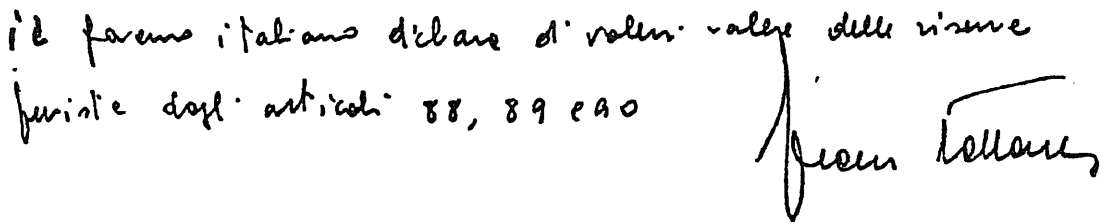 il governo italiano dichiara di volersi valere delle riserve
previste dagli articoli 88, 89 e 90